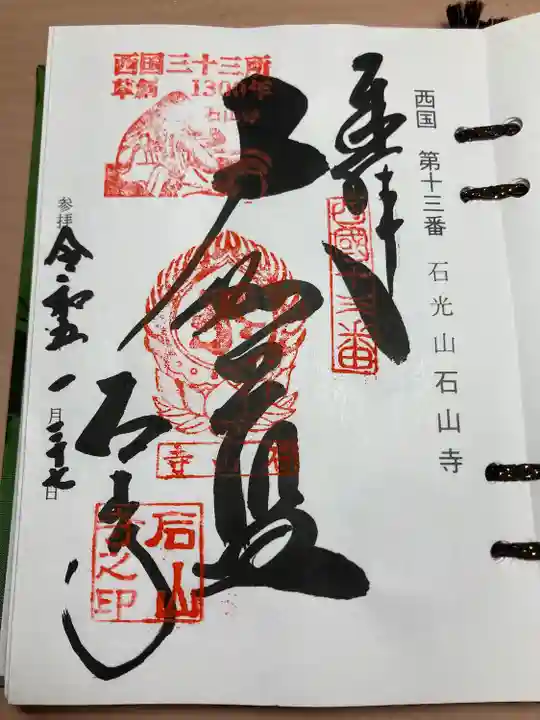 西国 第十三番 石光山石山寺
奉拝
西國十三番
大伽藍
西国三十三所
草創 1300年
石山寺
石山寺
石山
寺之印
参拝 令和五 一月二十七日